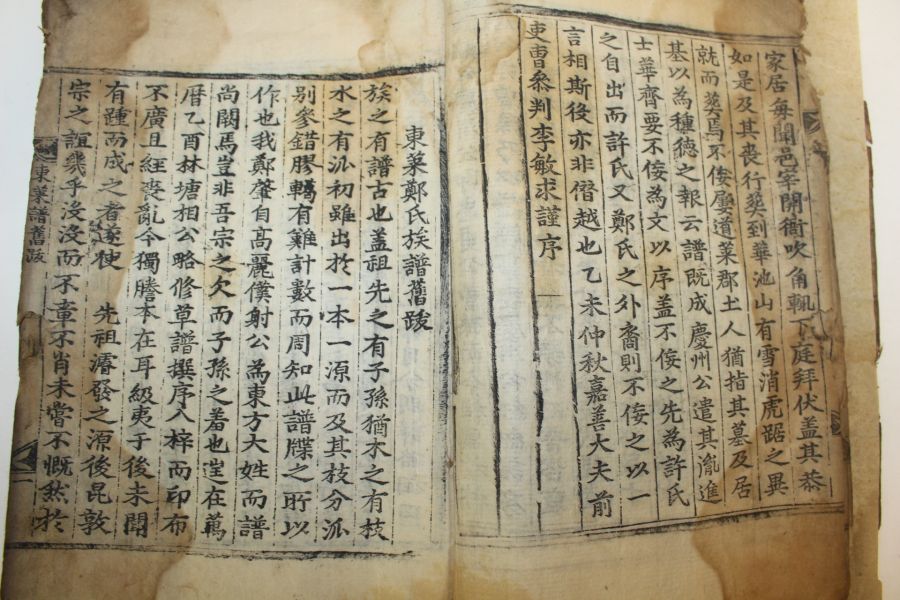 家居每聞邑宰開衙吹角輒下庭拜伏盖其恭
如是及其喪行葬到華池山有雪消虎踞之異
就而葬焉不侫屢道萊郡土人猶指其墓及居
基以為種德之報云譜既成慶州公遣其胤進
士華齊要不侫為文以序盖不侫之先為許氏
之自出而許氏又鄭氏之外裔則不侫之以一
言相斯後亦非僭越也乙未仲秋嘉善大夫前
吏曹叅判李敏求謹序
東萊鄭氏族譜舊跋
族之有譜古也盖祖先之有子孫猶木之有枝
水之有派初雖出於一本一源而及其枝分派
别參錯膠轕有難計數而周知此譜牒之所以
作也我鄭肇自高麗僕射公為東方大姓而譜
尚闕焉豈非吾宗之欠而子孫之羞也豈在萬
曆乙酉林塘相公略修草譜撰序入梓而印布
不廣且經喪亂今獨謄本在耳級夷于後未聞
有踵而成之者遂使 先祖濬發之源後昆敦
宗之誼幾乎沒沒而不章不肖未嘗不慨然於
東萊譜舊跋